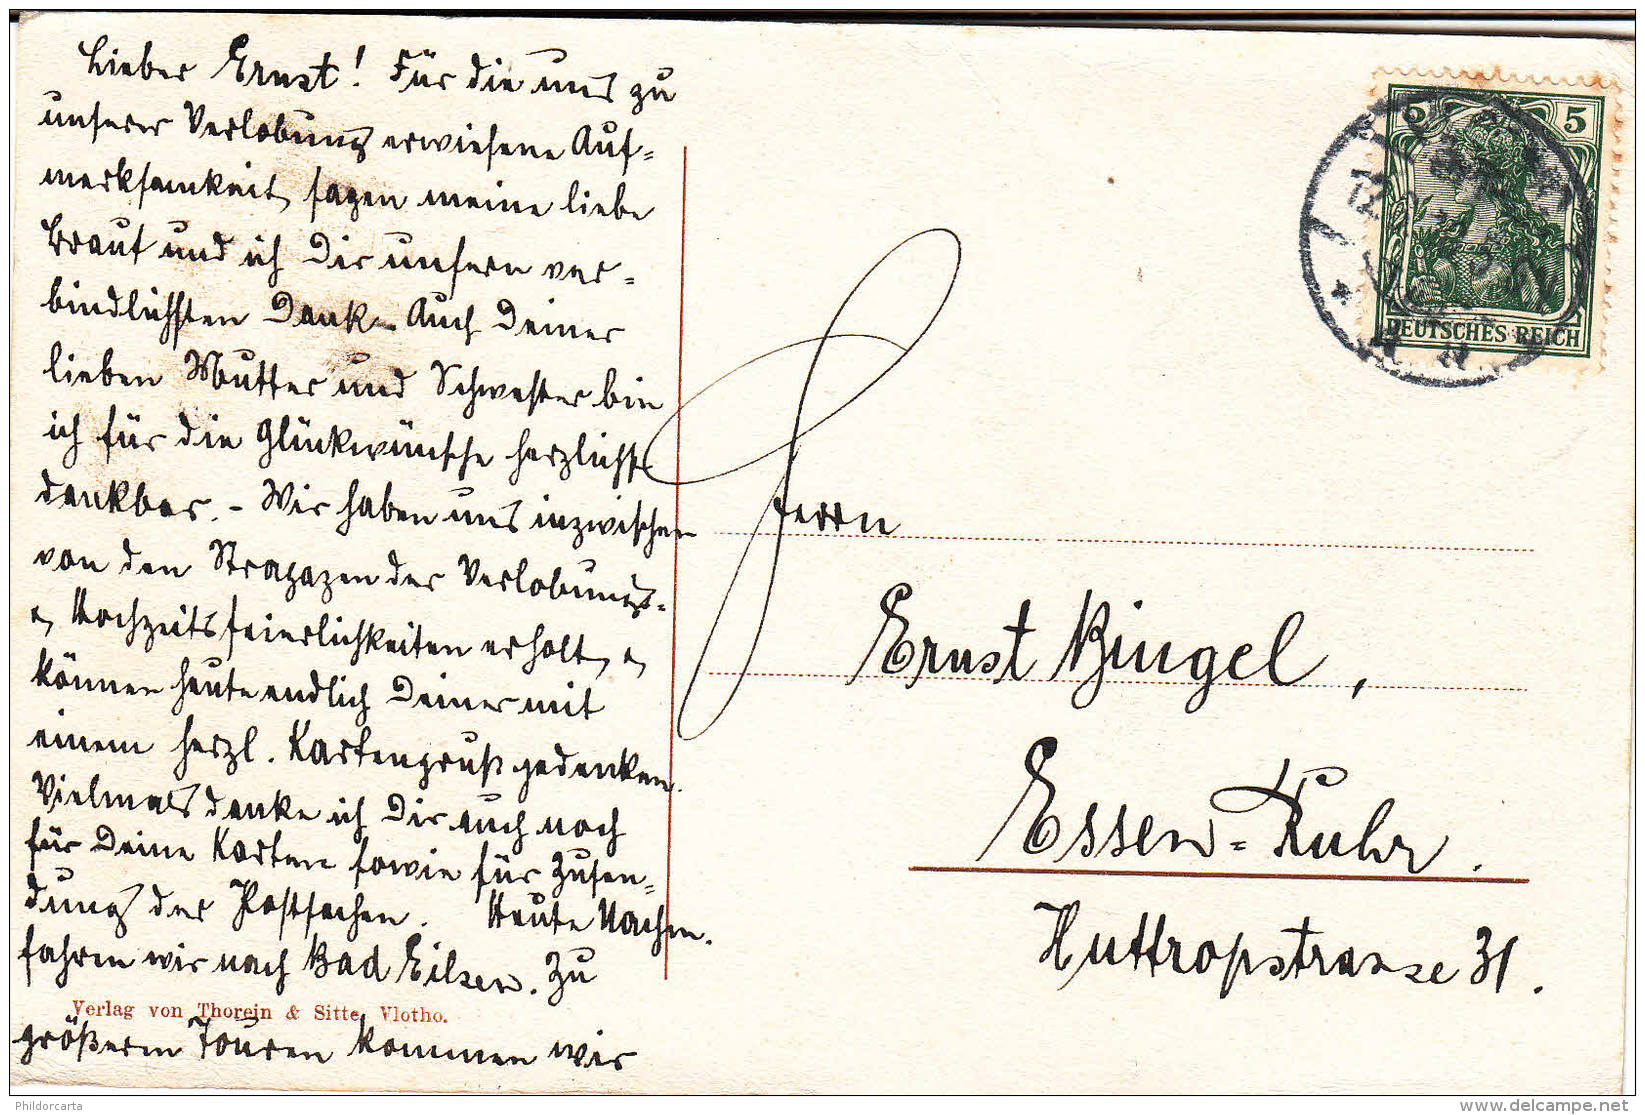 Lieber Ernst! Für die uns zu
unserer Verlobung erwiesene Auf=
merksamkeit, sagen meine liebe
Braut und ich Dir unsern ver=
bindlichsten Dank. Auch Deiner
lieben Mutter und Schwester bin
ich für die Glückwünsche herzlichst
dankbar. – Wir haben uns inzwischen
von den Strapazen der Verlobungs=
u. Hochzeitsfeierlichkeiten erholt, u.
können heute endlich Deiner mit
einem herzl. Kartengruß gedenken.
Vielmals danke ich Dir auch noch
für Deine Karten sowie für Zusen=
dung der Postsachen. Heute Nachm.
fahren wir nach Bad Eilsen. Zu
Verlag von Thorein & Sitte, Vlotho.
größeren Touren kommen wir
5 5
DEUTSCHES REICH
Herrn
Ernst Bingel,
Essen=Ruhr.
Huttropstrasse 31.
Phildorcarta
www.delcampe.net